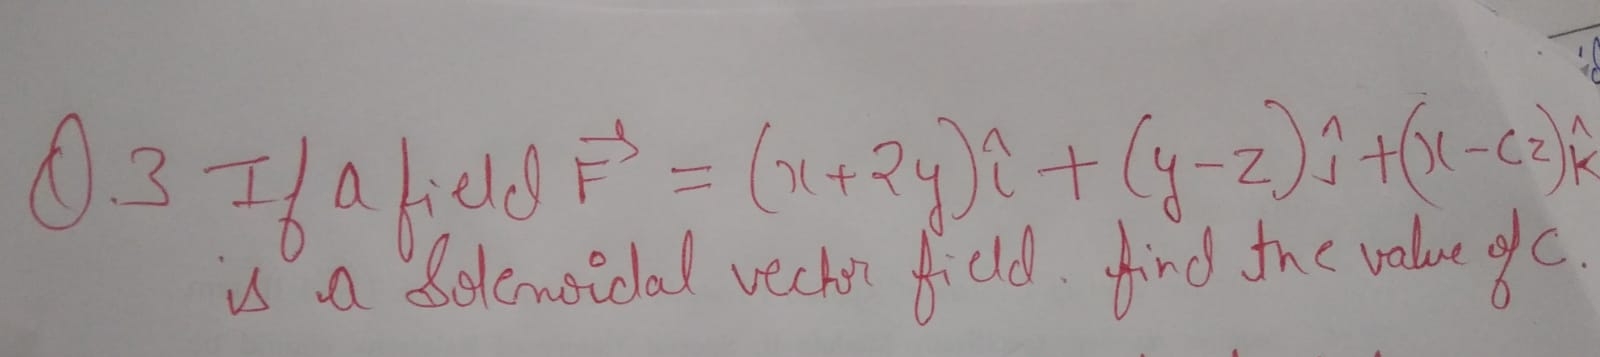 Q.3 If a field F⃗ = (x+2y)î + (y-z)ĵ + (x-cz)k̂
is a Solenoidal vector field. find the value of c.